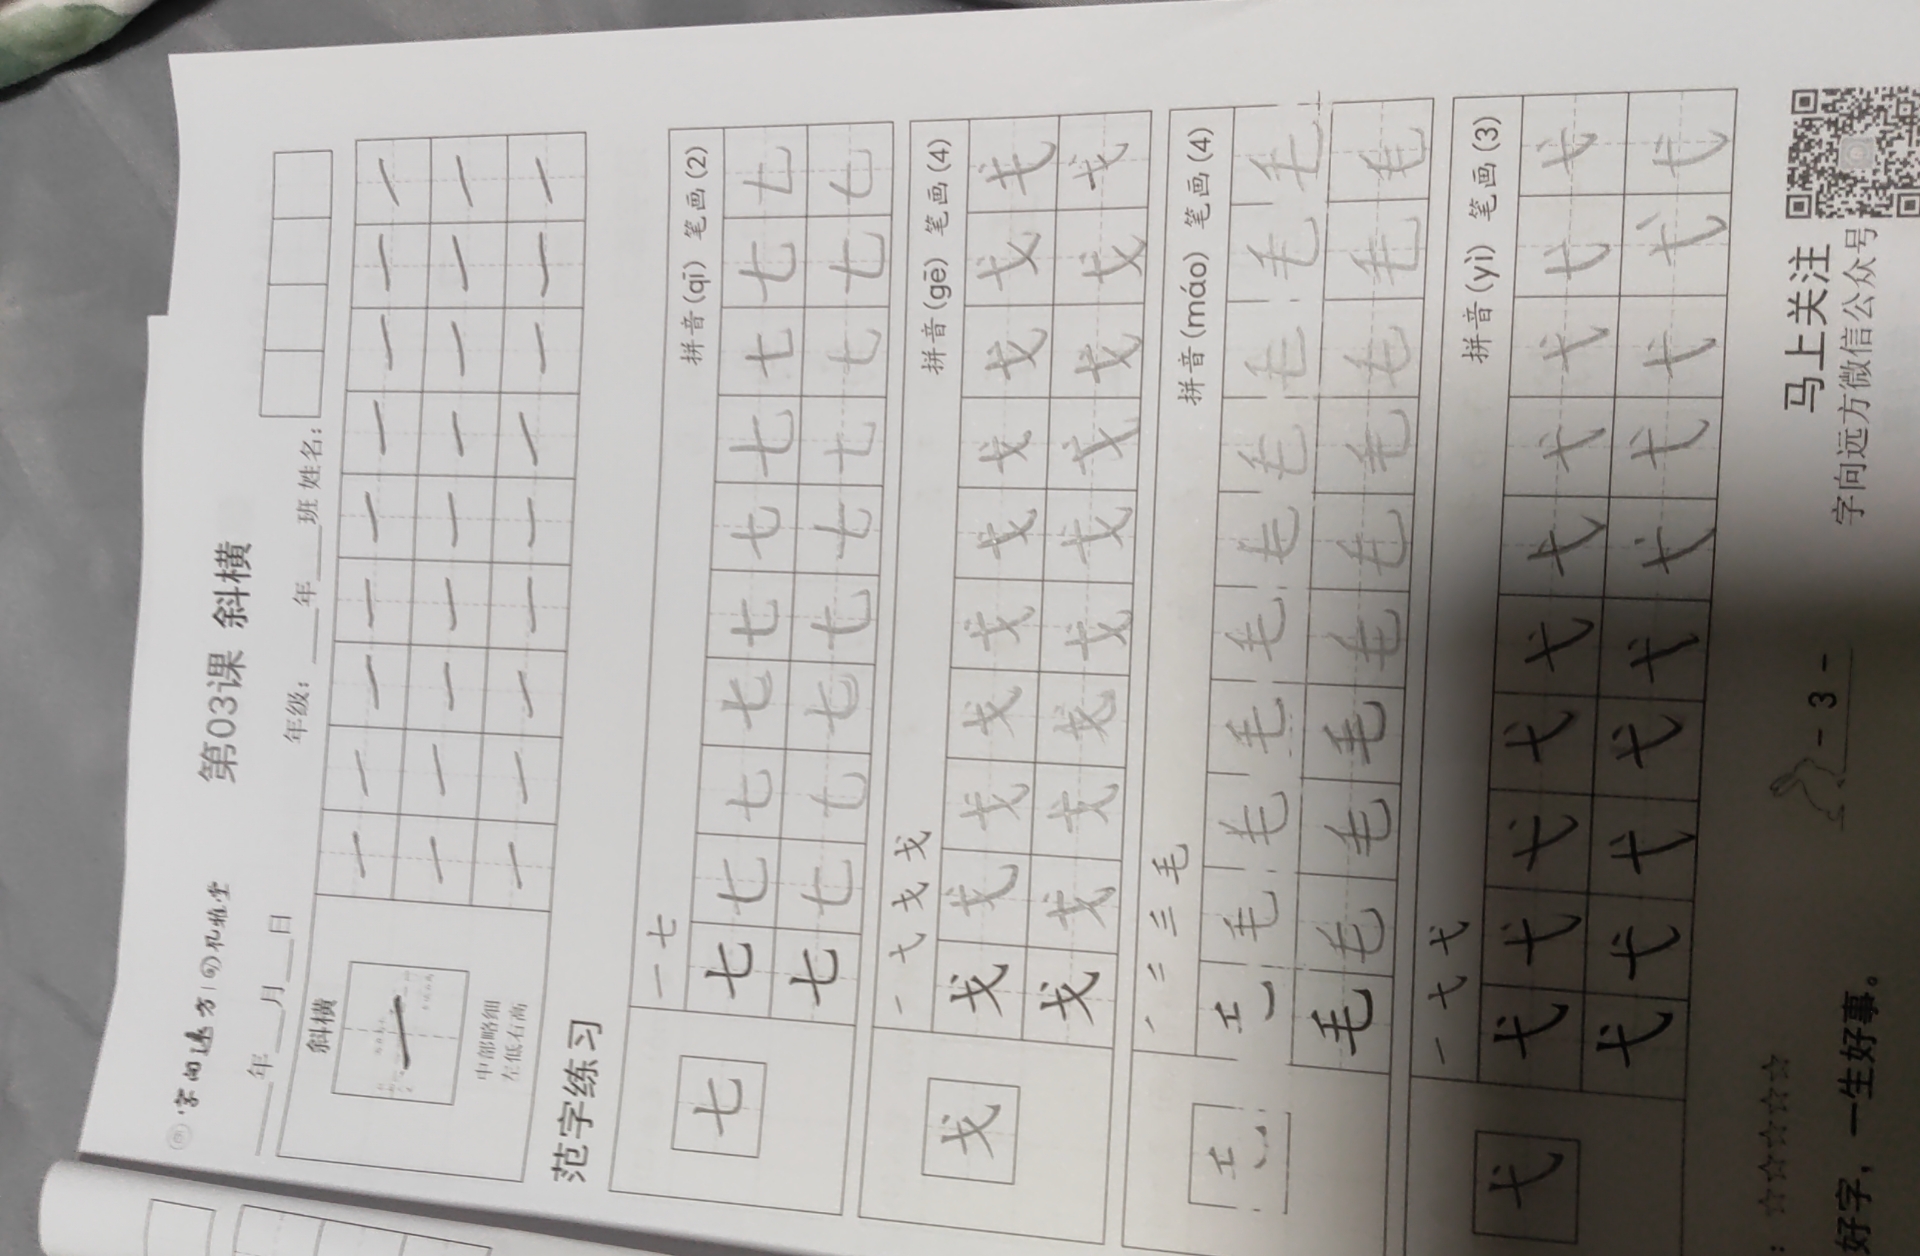 字向远方
第03课 斜横
年 月 日
年级： 年 班 姓名：
斜横
中部略细
左低右高
一 一 一 一 一 一 一 一 一
一 一 一 一 一 一 一 一 一
一 一 一 一 一 一 一 一 一
范字练习
七
一 七
拼音(qī) 笔画(2)
七 七 七 七 七 七 七 七 七 七
七 七 七 七 七 七 七 七 七 七
戈
一 弋 戈 戈
拼音(gē) 笔画(4)
戈 戈 戈 戈 戈 戈 戈 戈 戈 戈
戈 戈 戈 戈 戈 戈 戈 戈 戈 戈
毛
拼音(máo) 笔画(4)
毛 毛 毛 毛 毛 毛 毛 毛 毛 毛
毛 毛 毛 毛 毛 毛 毛 毛 毛 毛
弋
一 弋 弋
拼音(yì) 笔画(3)
弋 弋 弋 弋 弋 弋 弋 弋 弋 弋
弋 弋 弋 弋 弋 弋 弋 弋 弋 弋
： ☆☆☆☆☆
好字，一生好事。
- 3 -
马上关注
字向远方微信公众号